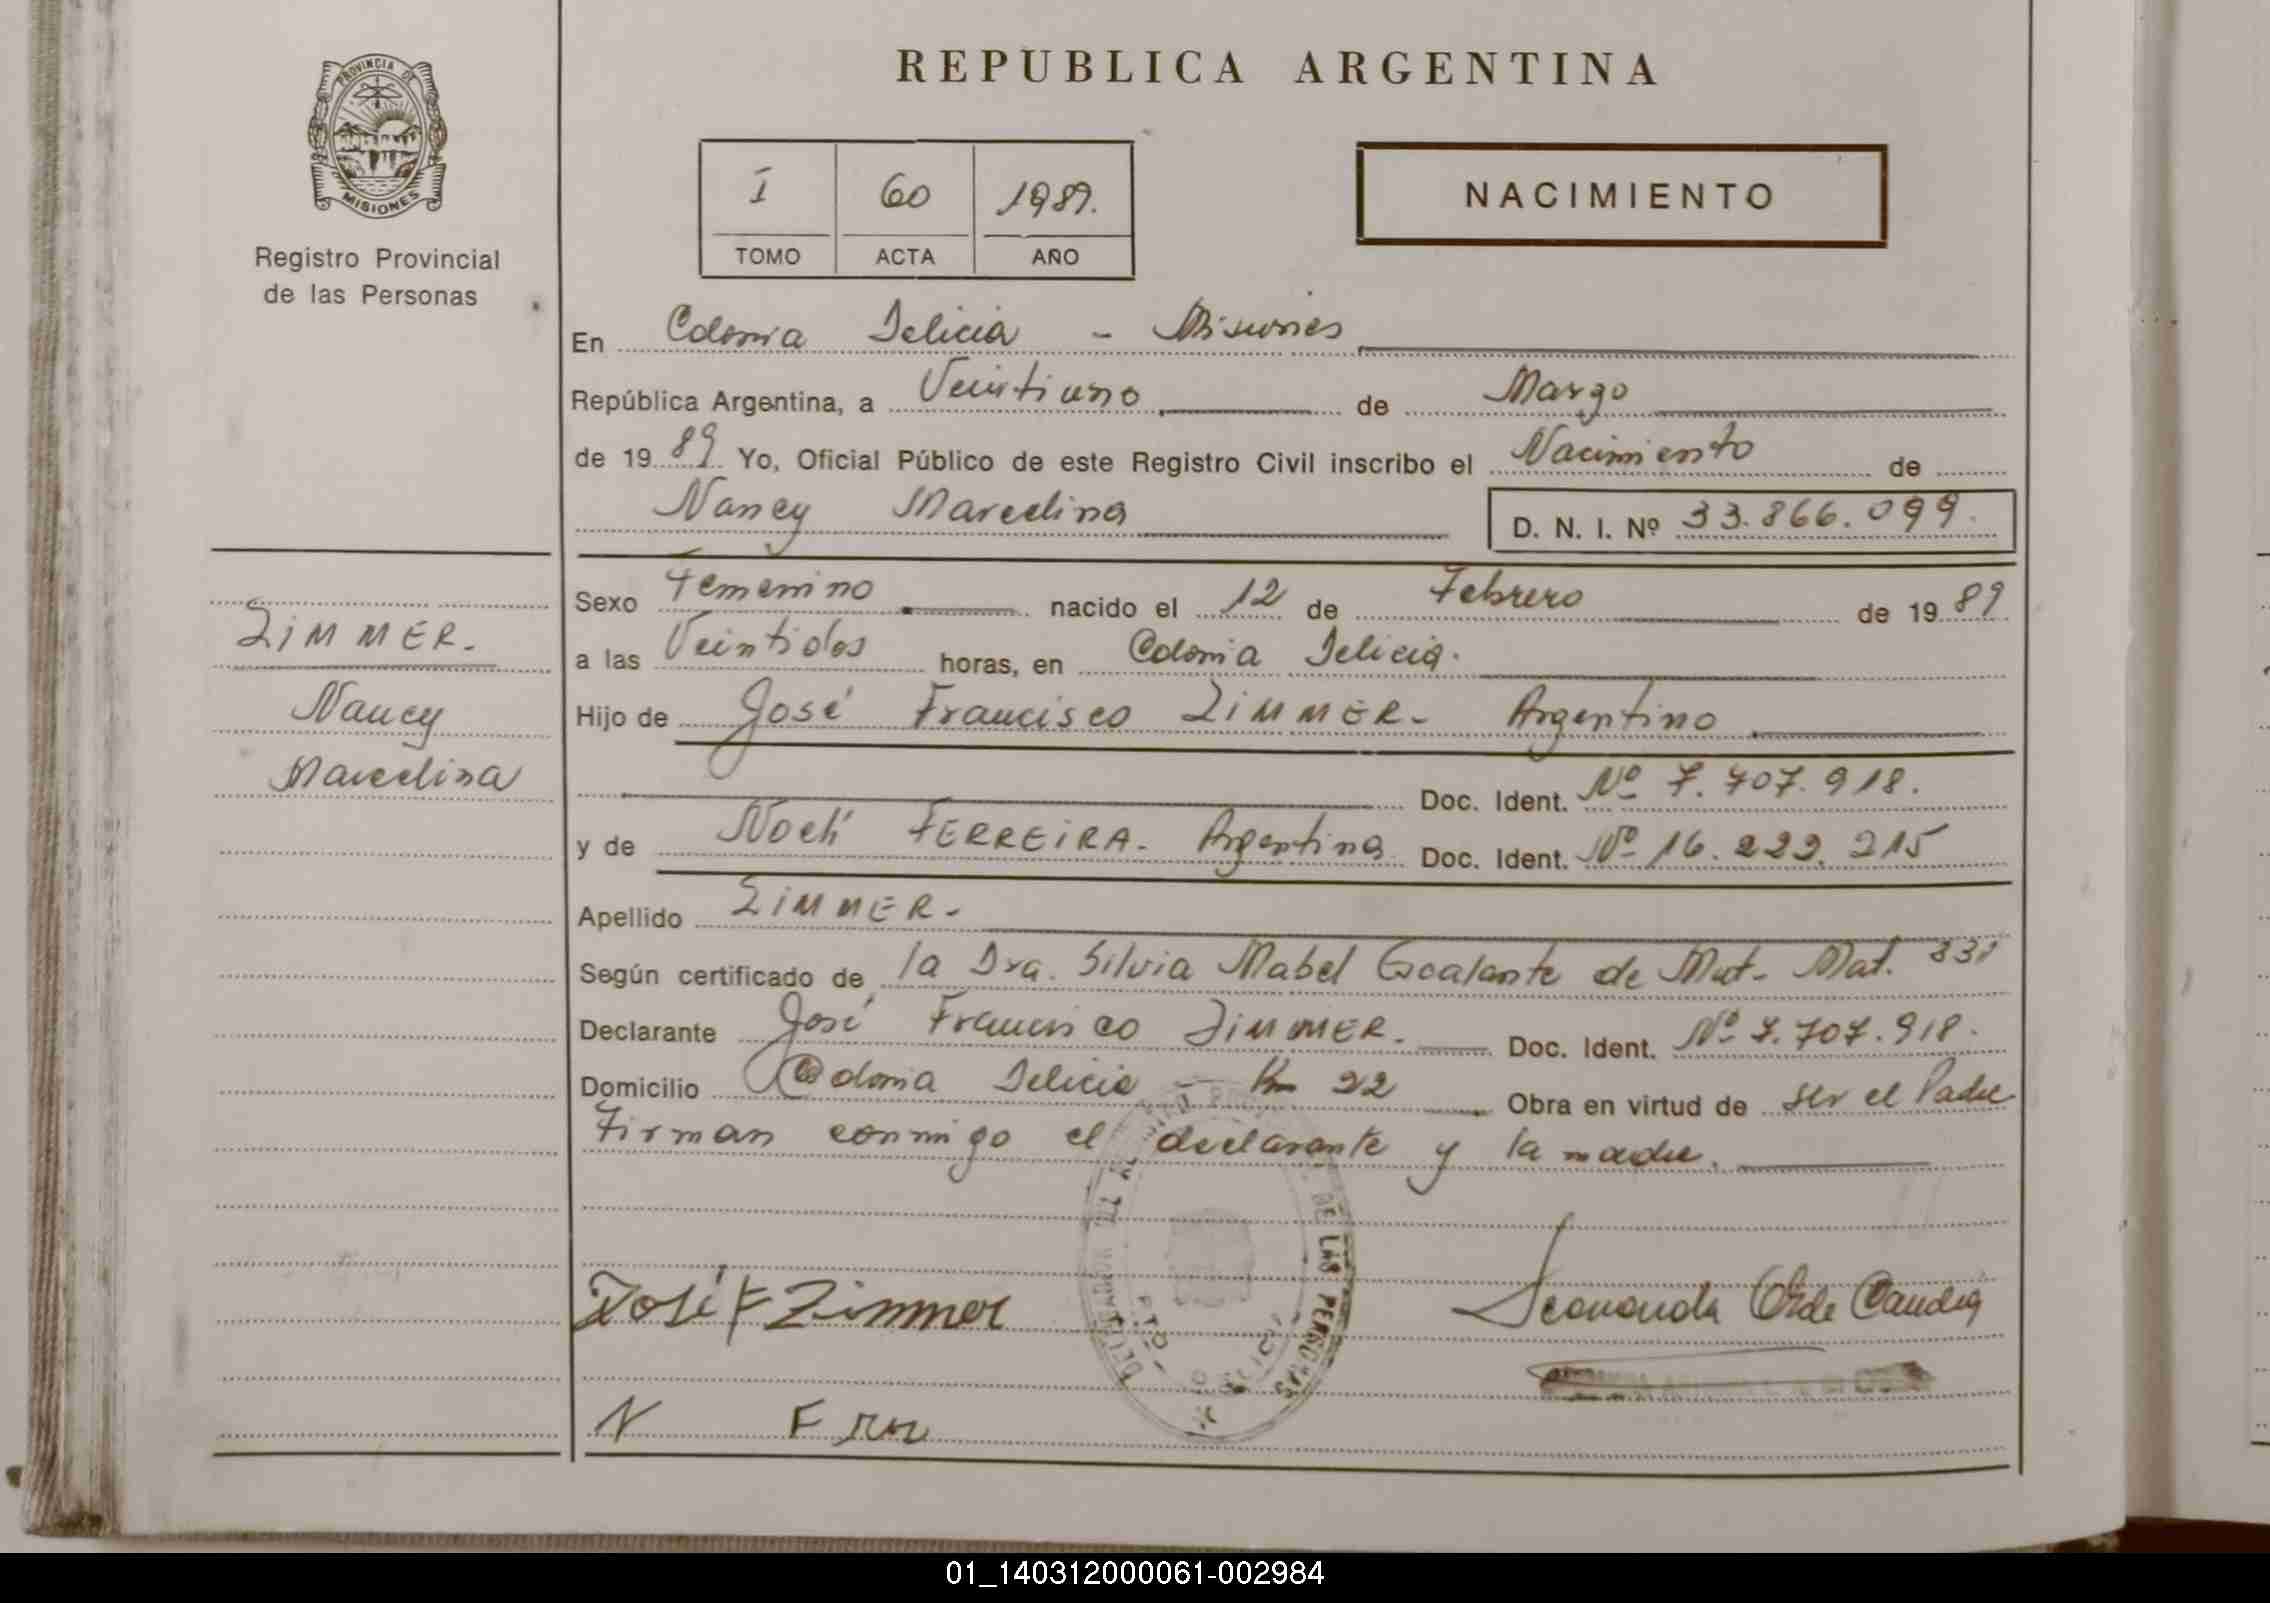 REPUBLICA ARGENTINA
PROVINCIA DE
MISIONES
Registro Provincial
de las Personas
I 60 1989.
TOMO ACTA AÑO
NACIMIENTO
En Colonia Delicia - Misiones
República Argentina, a Veintiuno de Marzo
de 1989 Yo, Oficial Público de este Registro Civil inscribo el Nacimiento de
Nancy Marcelina D. N. I. Nº 33.866.099.
Sexo Femenino nacido el 12 de Febrero de 1989
a las Veintidos horas, en Colonia Delicia.
Hijo de José Francisco ZIMMER- Argentino
Doc. Ident. Nº 7.707.918.
y de Noelí FERREIRA- Argentina Doc. Ident. Nº 16.222.215
Apellido ZIMMER-
Según certificado de la Dra. Silvia Mabel Escalante de Mat. 331
Declarante José Francisco ZIMMER. Doc. Ident. Nº 7.707.918.
Domicilio Colonia Delicia - Km 22 Obra en virtud de ser el Padre
Firman conmigo el declarante y la madre.
ZIMMER.
Nancy
Marcelina
José F Zimmer
N F
DE LAS PERSONAS
01_140312000061-002984